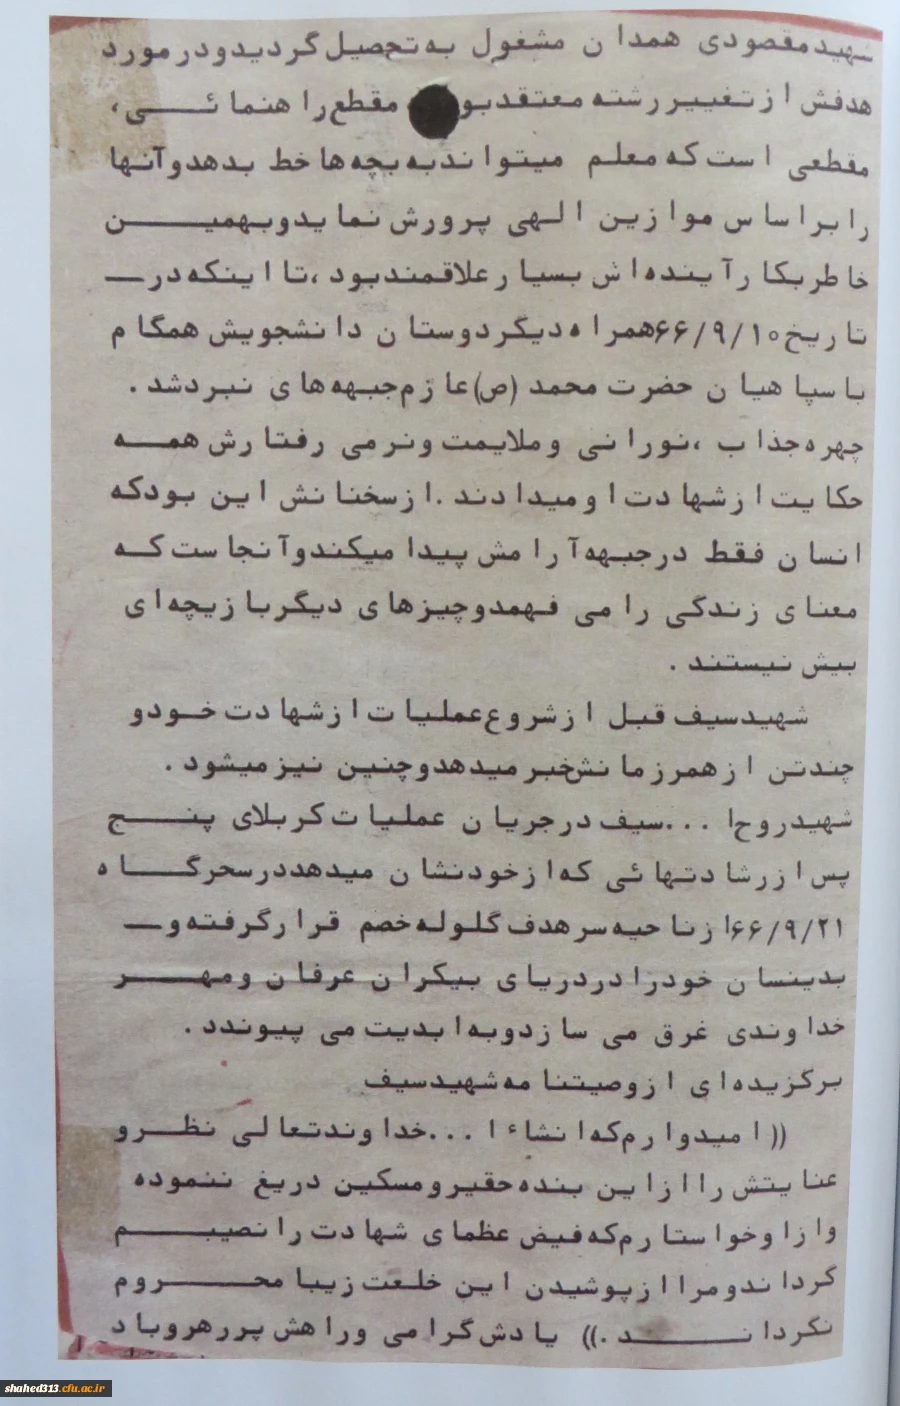 شهید مقصودی همدان مشغول به تحصیل گردید و در مورد
هدفش از تغییر رشته معتقد بو مقطع راهنمائی،
مقطعی است که معلم میتواند به بچه ها خط بدهد و آنها
را بر اساس موازین الهی پرورش نماید و بهمین
خاطر بکار آینده اش بسیار علاقمند بود ،تا اینکه در
تاریخ ۶۶/۹/۱۰ همراه دیگر دوستان دانشجویش همگام
با سپاهیان حضرت محمد (ص) عازم جبهه های نبرد شد .
چهره جذاب ،نورانی و ملایمت و نرمی رفتارش همه
حکایت از شهادت او میدادند .از سخنانش این بود که
انسان فقط در جبهه آرامش پیدا میکند و آنجاست که
معنای زندگی را می فهمد و چیزهای دیگر بازیچه ای
بیش نیستند .
شهید سیف قبل از شروع عملیات از شهادت خود و
چند تن از همرزمانش خبر میدهد و چنین نیز میشود .
شهید روح ا ...سیف در جریان عملیات کربلای پنج
پس از رشادتهائی که از خود نشان میدهد در سحرگاه
۶۶/۹/۲۱ از ناحیه سر هدف گلوله خصم قرار گرفته و
بدینسان خود را در دریای بیکران عرفان و مهر
خداوندی غرق می سازد و به ابدیت می پیوندد .
برگزیده ای از وصیتنامه شهید سیف
(( امیدوارم که انشاء ا ...خداوند تعالی نظر و
عنایتش را از این بنده حقیر و مسکین دریغ ننموده
و از او خواستارم که فیض عظمای شهادت را نصیبم
گرداند و مرا از پوشیدن این خلعت زیبا محروم
نگرداند .)) یادش گرامی و راهش پر رهرو باد
shahed313.cfu.ac.ir